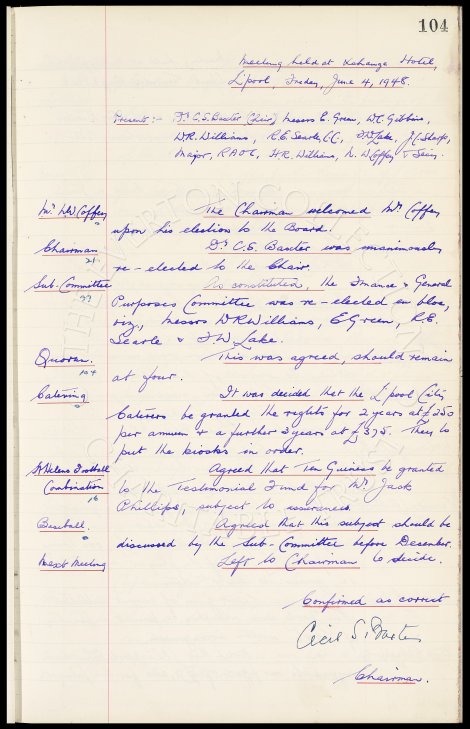 104
Meeting held at Exchange Hotel,
L'pool, Friday, June 4, 1948.
Presents:- Dr C.S. Baxter (Chair) Messrs E. Green, W.C. Gibbins,
D.R. Williams, R.E. Searle C.C, J.C. Sharp,
H.R. Williams, N. W Coffey & Secy.
Mr. NW Coffey The Chairman welcomed Mr. Coffey
upon his election to the Board.
Chairman Dr C.S. Baxter was unanimously
21
re-elected to the Chair.
Sub-Committee As constituted, the Finance & General
99
Purposes Committee was re-elected en bloc,
viz, Messrs D.R Williams, E. Green, R.E.
Searle &
Quorum. This was agreed, should remain
104
at four.
Catering It was decided that the L'pool City
Caterers be granted the rights for 2 years at £250
per annum & a further 3 years at £375. They to
put the kiosks in order.
St Helens Football Agreed that Ten Guineas be granted
Combination to the Testimonial Fund for Mr. Jack
16
Phillips, subject to
Baseball. Agreed that this subject should be
discussed by the Sub-Committee before December.
Next Meeting Left to Chairman to decide.
Confirmed as correct
Cecil S. Baxter
Chairman.